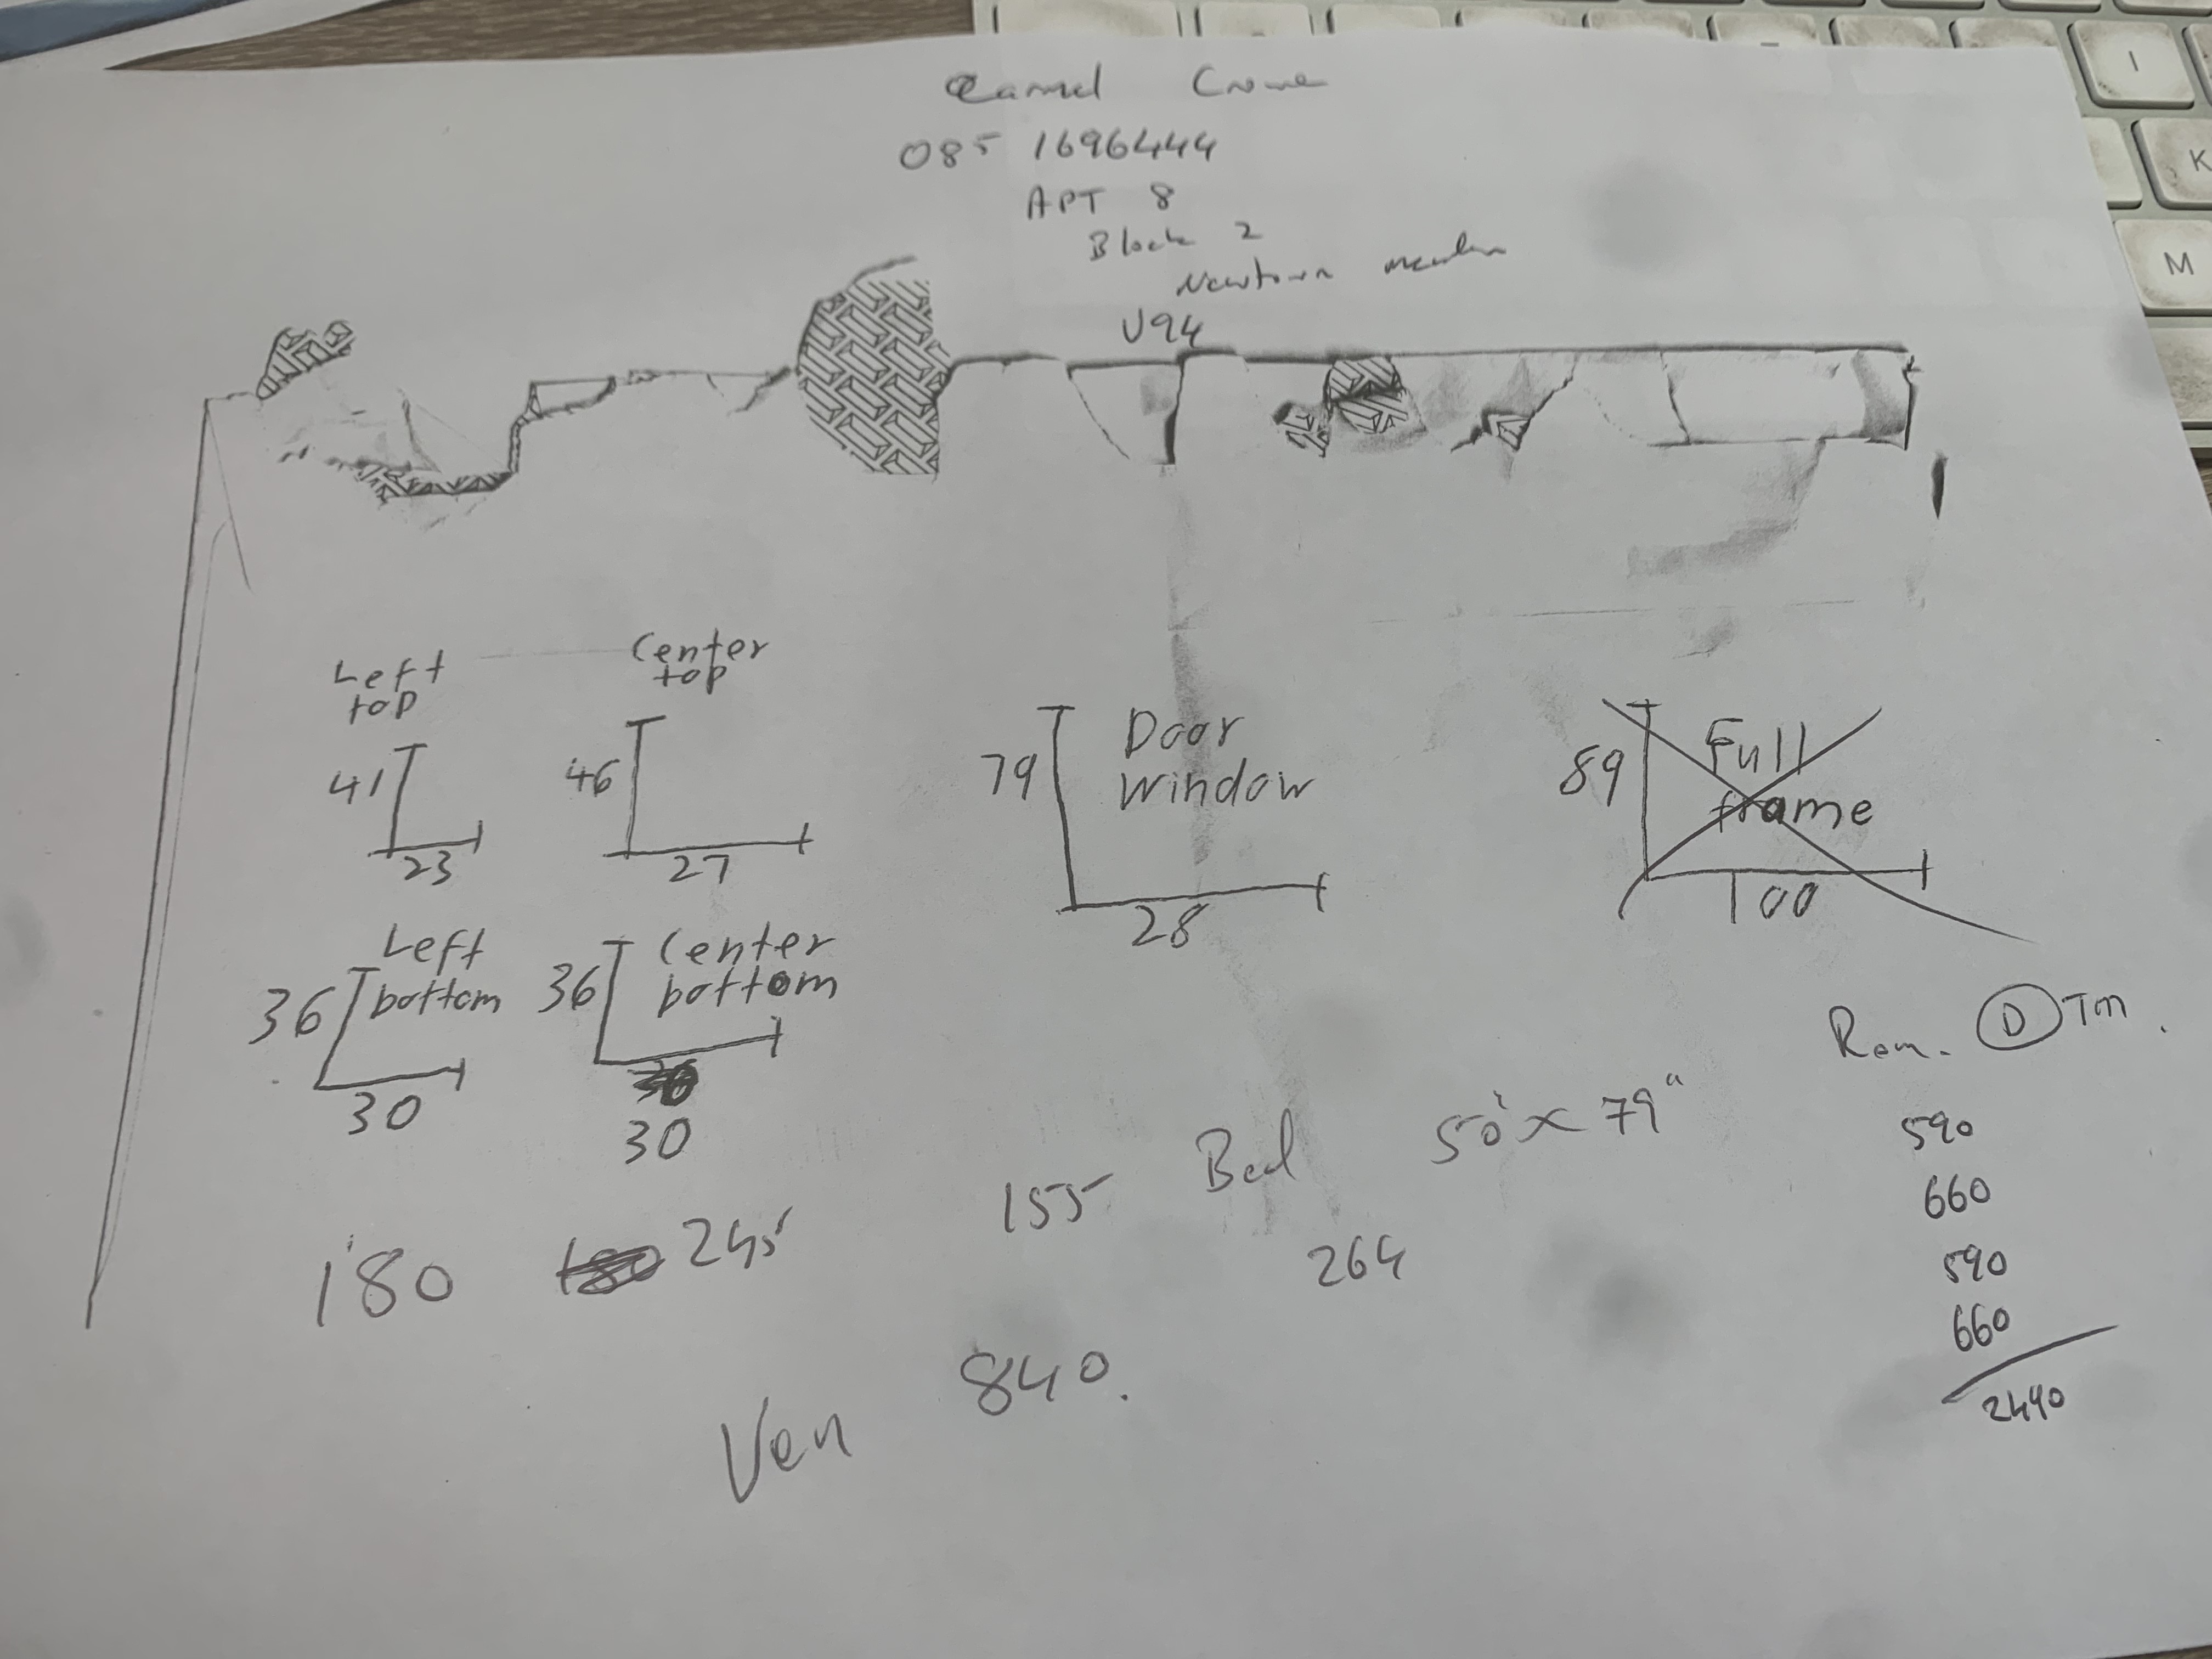 085 1696444
APT 8
Block 2
Newtown
V94
Left
top
41
23
Center
top
46
27
Door
window
79
28
Full
frame
89
100
Left
bottom
36
30
Center
bottom
36
30
Rom. D Tm.
180
245
155 Bed 50" x 79"
264
Ven 840.
590
660
590
660
2490
I
K
M